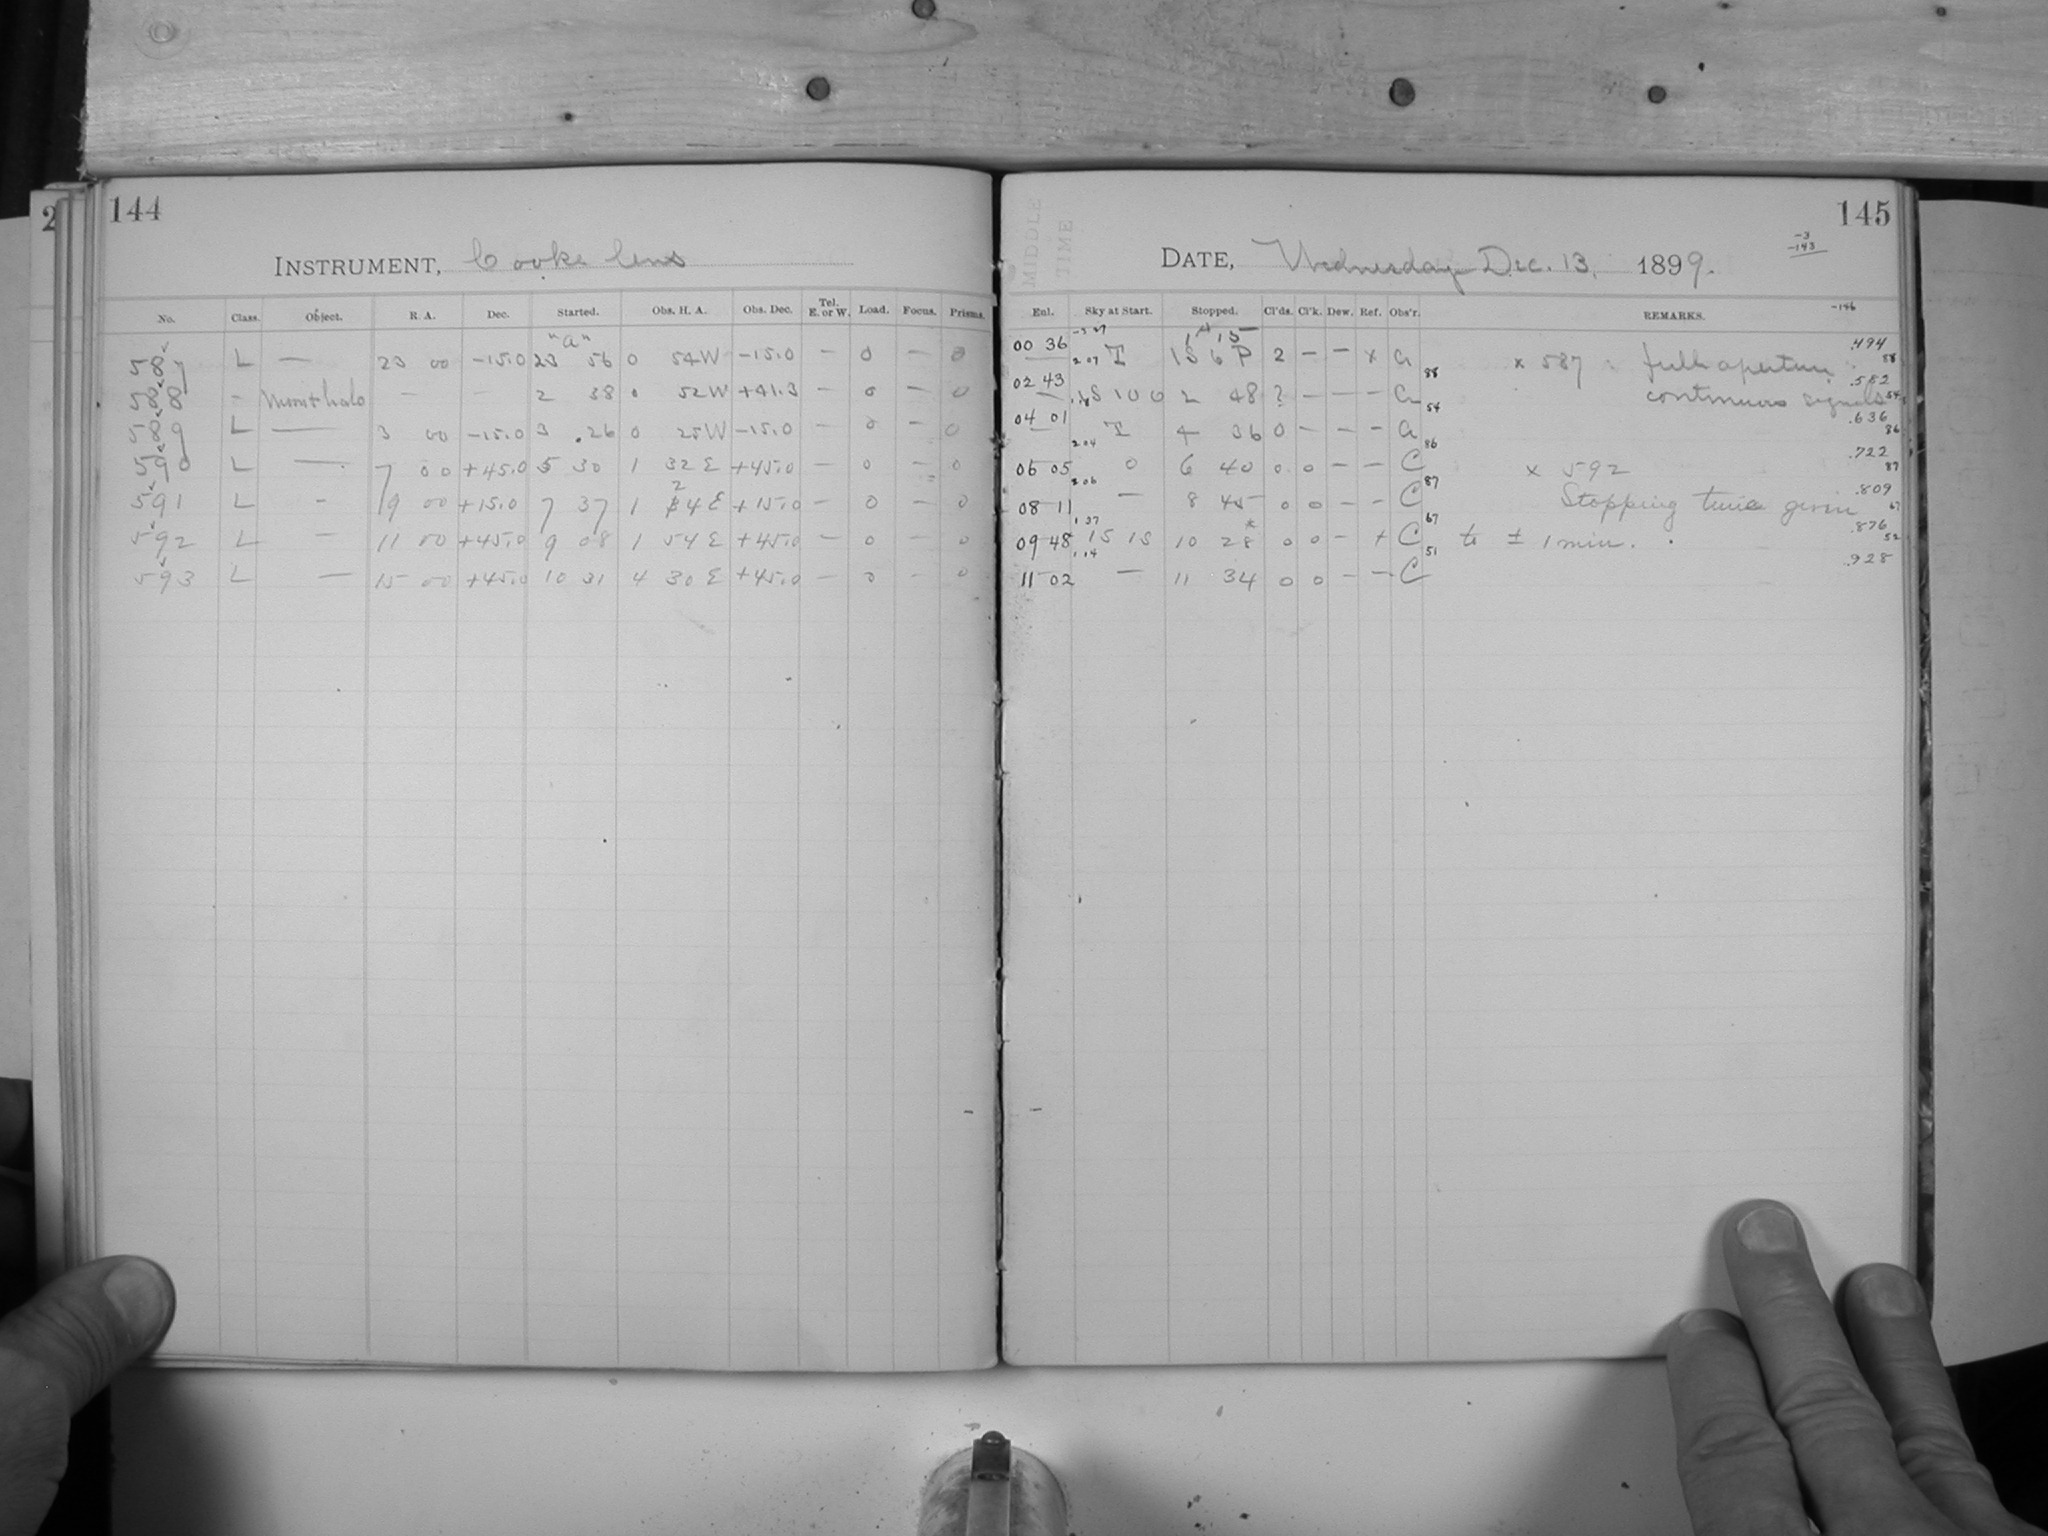 144
INSTRUMENT, Cooke lens
No. Class. Object. R. A. Dec. Started. Obs. H. A. Obs. Dec. Tel. E. or W. Load. Focus. Prisms.
"a"
587 L — 23 00 -15.0 23 56 0 54 W -15.0 — 0 — 0
588 - — — 2 38 0 52 W +41.3 — 0 — 0
589 L — 3 00 -15.0 3 .26 0 25 W -15.0 — 0 — 0
590 L — 7 00 +45.0 5 30 1 32 E +45.0 — 0 — 0
591 L - 9 00 +15.0 7 37 1 24 E +15.0 — 0 — 0
592 L — 11 00 +45.0 9 08 1 54 E +45.0 — 0 — 0
593 L — 15 00 +45.0 10 31 4 30 E +45.0 — 0 — 0
145
MIDDLE TIME
DATE, Wednesday Dec. 13, 1899.
-3
-143
-146
Enl. Sky at Start. Stopped. Cl'ds. Cl'k. Dew. Ref. Obs'r. REMARKS.
1 15
00 36 T 1S 6 P 2 — — x a x 587 : full aperture .494
88
02 43 1S 100 2 48 ? — — — a continuous signals .582
54
04 01 T 4 36 0 — — — a .636
86
06 05 0 6 40 0 0 — — C x 592 .722
87
08 11 — 8 45 0 0 — — C Stopping time given .809
67
09 48 1S 1S 10 28 0 0 — + C to ± 1 min. .876
52
11 02 — 11 34 0 0 — — C .928